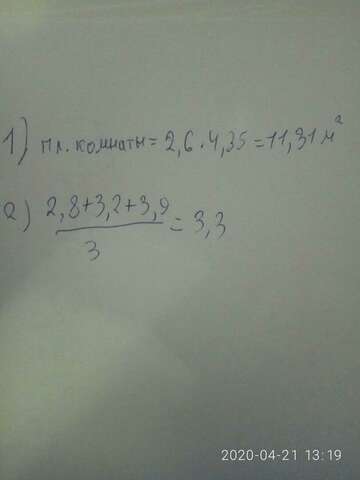 1) пл. комнаты = 2,6 · 4,35 = 11,31 м²
2) 2,8+3,2+3,9
3
= 3,3
2020-04-21 13:19